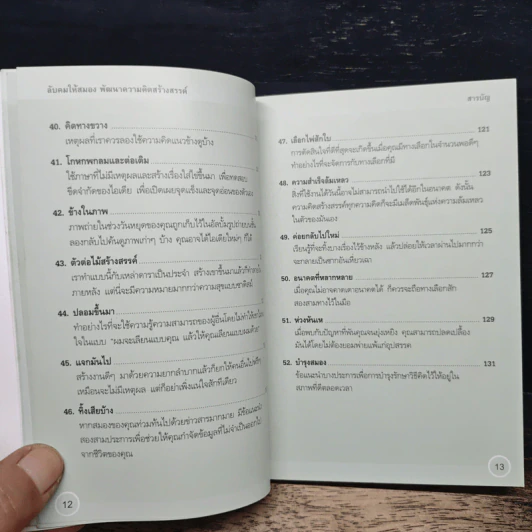 ลับคมให้สมอง พัฒนาความคิดสร้างสรรค์
40. คิดทางขวาง
เหตุผลที่เราควรลองใช้ความคิดแนวข้างดูบ้าง
41. โกหกพกลมและต่อเติม
ใช้ภาษาที่ไม่มีเหตุผลและสร้างเรื่องไกใช้ขึ้นมา เพื่อทดสอบ
ขีดจำกัดของไอเดีย เพื่อเปิดเผยจุดแข็งและจุดอ่อนของตัวเอง
42. ข้างในภาพ
ภาพถ่ายในช่วงวันหยุดของคุณถูกเก็บไว้ในอัลบั้มรูป
ลองกลับไปค้นดูภาพเก่าๆ บ้าง คุณอาจได้ไอเดียใหม่ๆ ก็ได้
43. ตัวต่อไม้สร้างสรรค์
เราทำแบบนี้กับเหล่าดาราเป็นประจำ สร้างเขาขึ้นมาแล้วทำลาย
ภายหลัง แต่นี่จะมีความหมายมากกว่าความสุขแบบซาดิสม์
44. ปลอมขึ้นมา
ทำอย่างไรที่จะใช้ความรู้ความสามารถของผู้อื่นโดยไม่ทำให้
ใจในแบบ "ผมจะเลียนแบบคุณ แล้วให้คุณเลียนแบบผมด้วย"
45. แจกมันไป
สร้างงานดีๆ มาด้วยความยากลำบากแล้วก็ยกให้คนอื่นไปฟรีๆ
เหมือนจะไม่มีเหตุผล แต่ก็อย่าเพิ่งแน่ใจสักทีเดียว
46. ทิ้งเสียบ้าง
หากสมองของคุณท่วมท้นไปด้วยข่าวสารมากมาย มีข้อแนะนำ
สองสามประการเพื่อช่วยให้คุณกำจัดข้อมูลที่ไม่จำเป็นออกไป
จากชีวิตของคุณ
12
สารบัญ
47. เลือกไพ่สักใบ 121
การตัดสินใจที่ดีที่สุดจะเกิดขึ้นเมื่อคุณมีทางเลือกในจำนวนพอดีๆ
ทำอย่างไรที่จะจัดการกับทางเลือกที่มี
48. ความสำเร็จล้มเหลว 123
สิ่งที่ใช้งานได้วันนี้อาจไม่สามารถนำไปใช้ได้อีกในอนาคต ดังนั้น
ความคิดสร้างสรรค์ทุกความคิดก็จะมีเมล็ดพันธุ์แห่งความล้มเหลว
ในตัวของมันเอง
49. ค่อยกลับไปใหม่ 125
เรียนรู้ที่จะทิ้งบางเรื่องไว้ข้างหลัง แล้วปล่อยให้เวลาผ่านไปมากกว่า
จะกลายเป็นซากอันเหี่ยวเฉา
50. อนาคตที่หลากหลาย 127
เมื่อคุณไม่อาจคาดเดาอนาคตได้ ก็ควรจะถือทางเลือกสัก
สองสามทางไว้ในมือ
51. ห่วงหันเห 129
เมื่อพบกับปัญหาที่พันคุณจนยุ่งเหยิง คุณสามารถปลดเปลื้อง
มันได้โดยไม่ต้องยอมพ่ายแพ้แก่อุปสรรค
52. บำรุงสมอง 131
ข้อแนะนำบางประการเพื่อการบำรุงรักษาวิธีคิดไว้ให้อยู่ใน
สภาพที่ดีตลอดเวลา
13